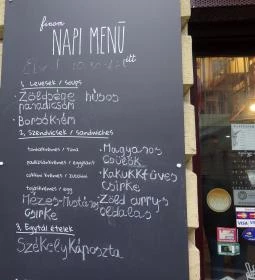 finom
NAPI MENÜ
itt
1. Levesek / Soups
Zöldséges húsos
paradicsom
Borsókrém
2. Szendvicsek / Sandwiches
tonhalkrémes / tuna
padlizsánkrémes / eggplant
cukkini krémes / zucchini
tojáskrémes / egg
Mézes-Mustáros
csirke
Magyaros
csülök
Kakukkfüves
csirke
Zöld curry-s
oldalas
3. Egytál ételek
Székelykáposzta
VISA